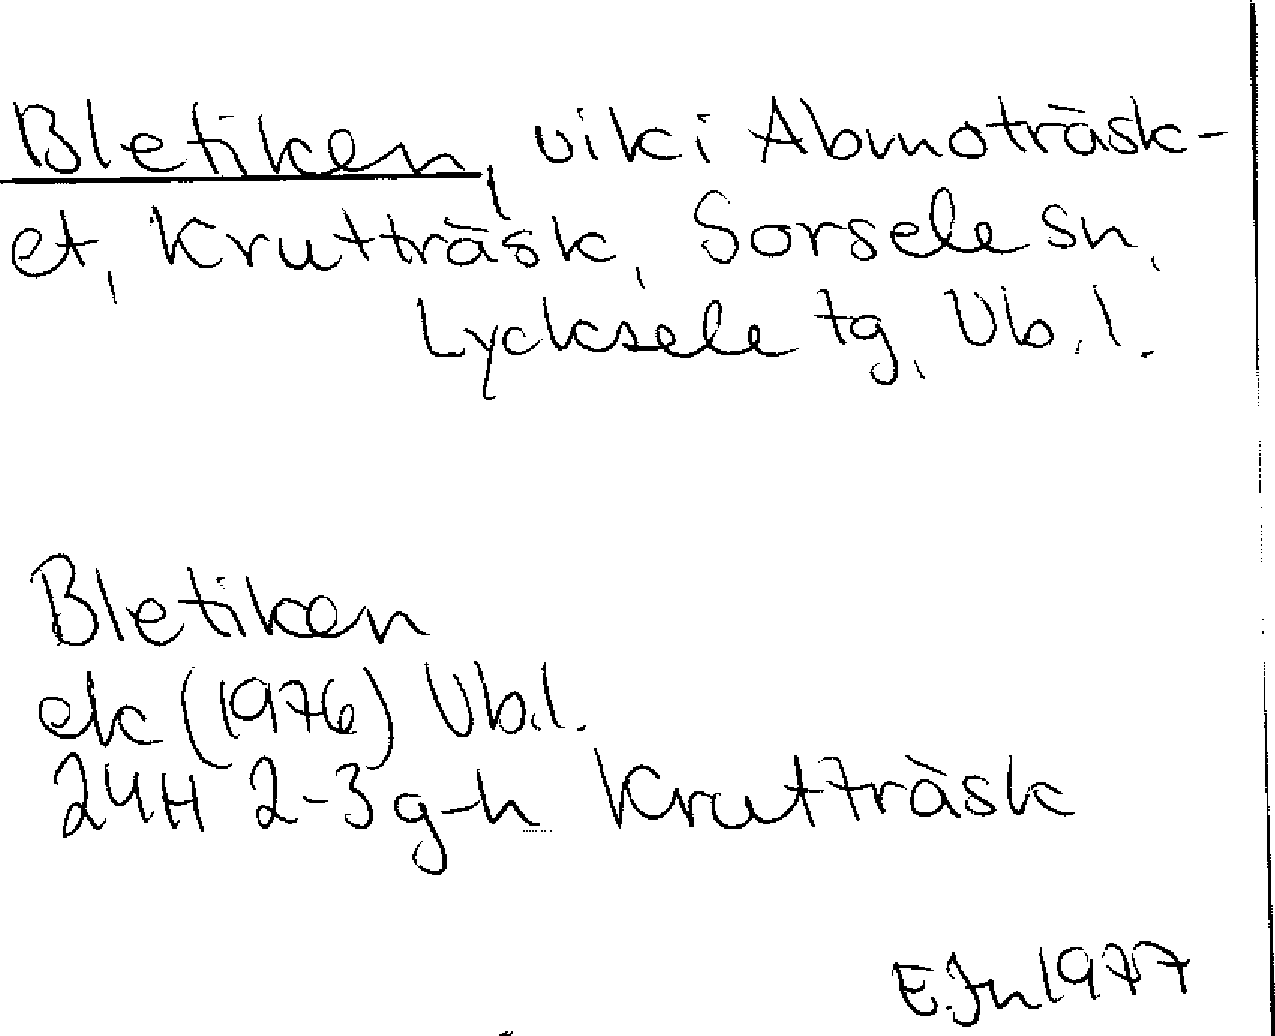 Bletiken, vik i Abmoträsk-
et, Krutträsk, Sorsele sn,
Lycksele tg, Vb. l.
Bletiken
ek (1976) Vb.l.
24H 2-3 g-h Krutträsk
E.Jn 1977